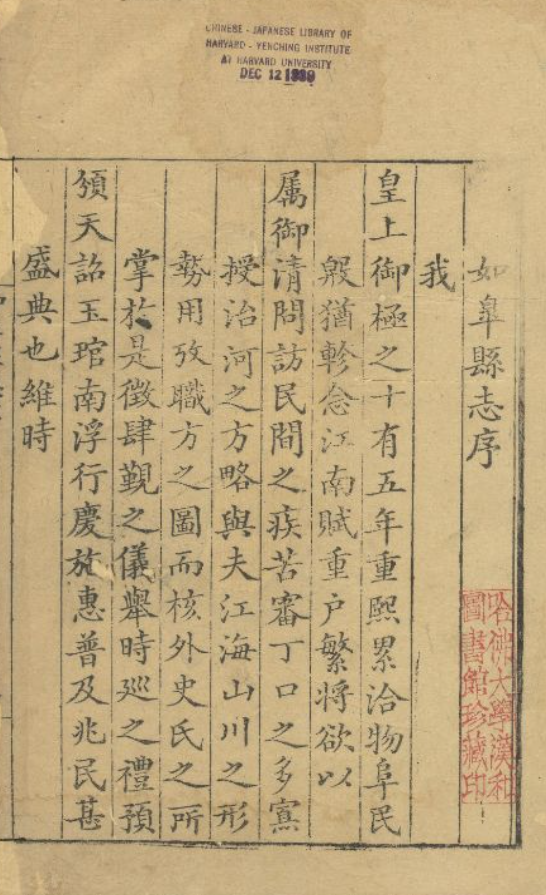 CHINESE - JAPANESE LIBRARY OF
HARVARD - YENCHING INSTITUTE
AT HARVARD UNIVERSITY
DEC 12 1939
如臯縣志序
我
皇上御極之十有五年重熙累洽物阜民
殷猶軫念江南賦重户繁將欲以
属御清問訪民間之疾苦審丁口之多寡
授治河之方略與夫江海山川之形
勢用攷職方之圖而核外史氏之所
掌於是徵肆覲之儀舉時廵之禮預
頒天詔玉琯南浮行慶施惠普及兆民甚
盛典也維時
哈佛大學漢和
圖書館珍藏印